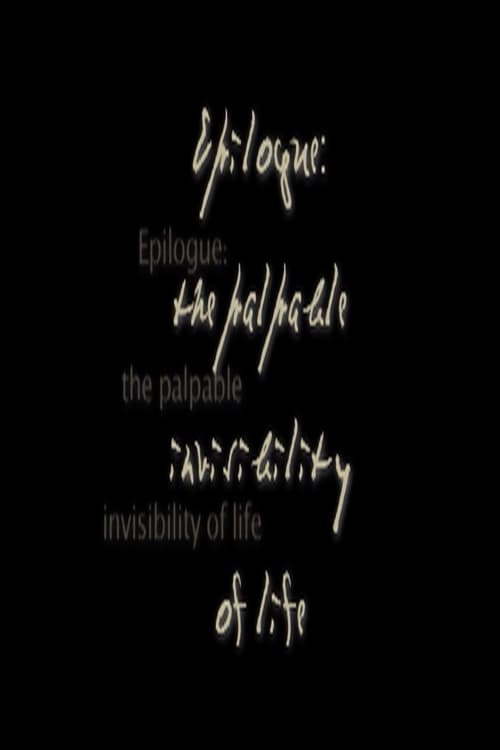 Epilogue:
Epilogue:
the palpable
the palpable
invisibility
invisibility of life
of life